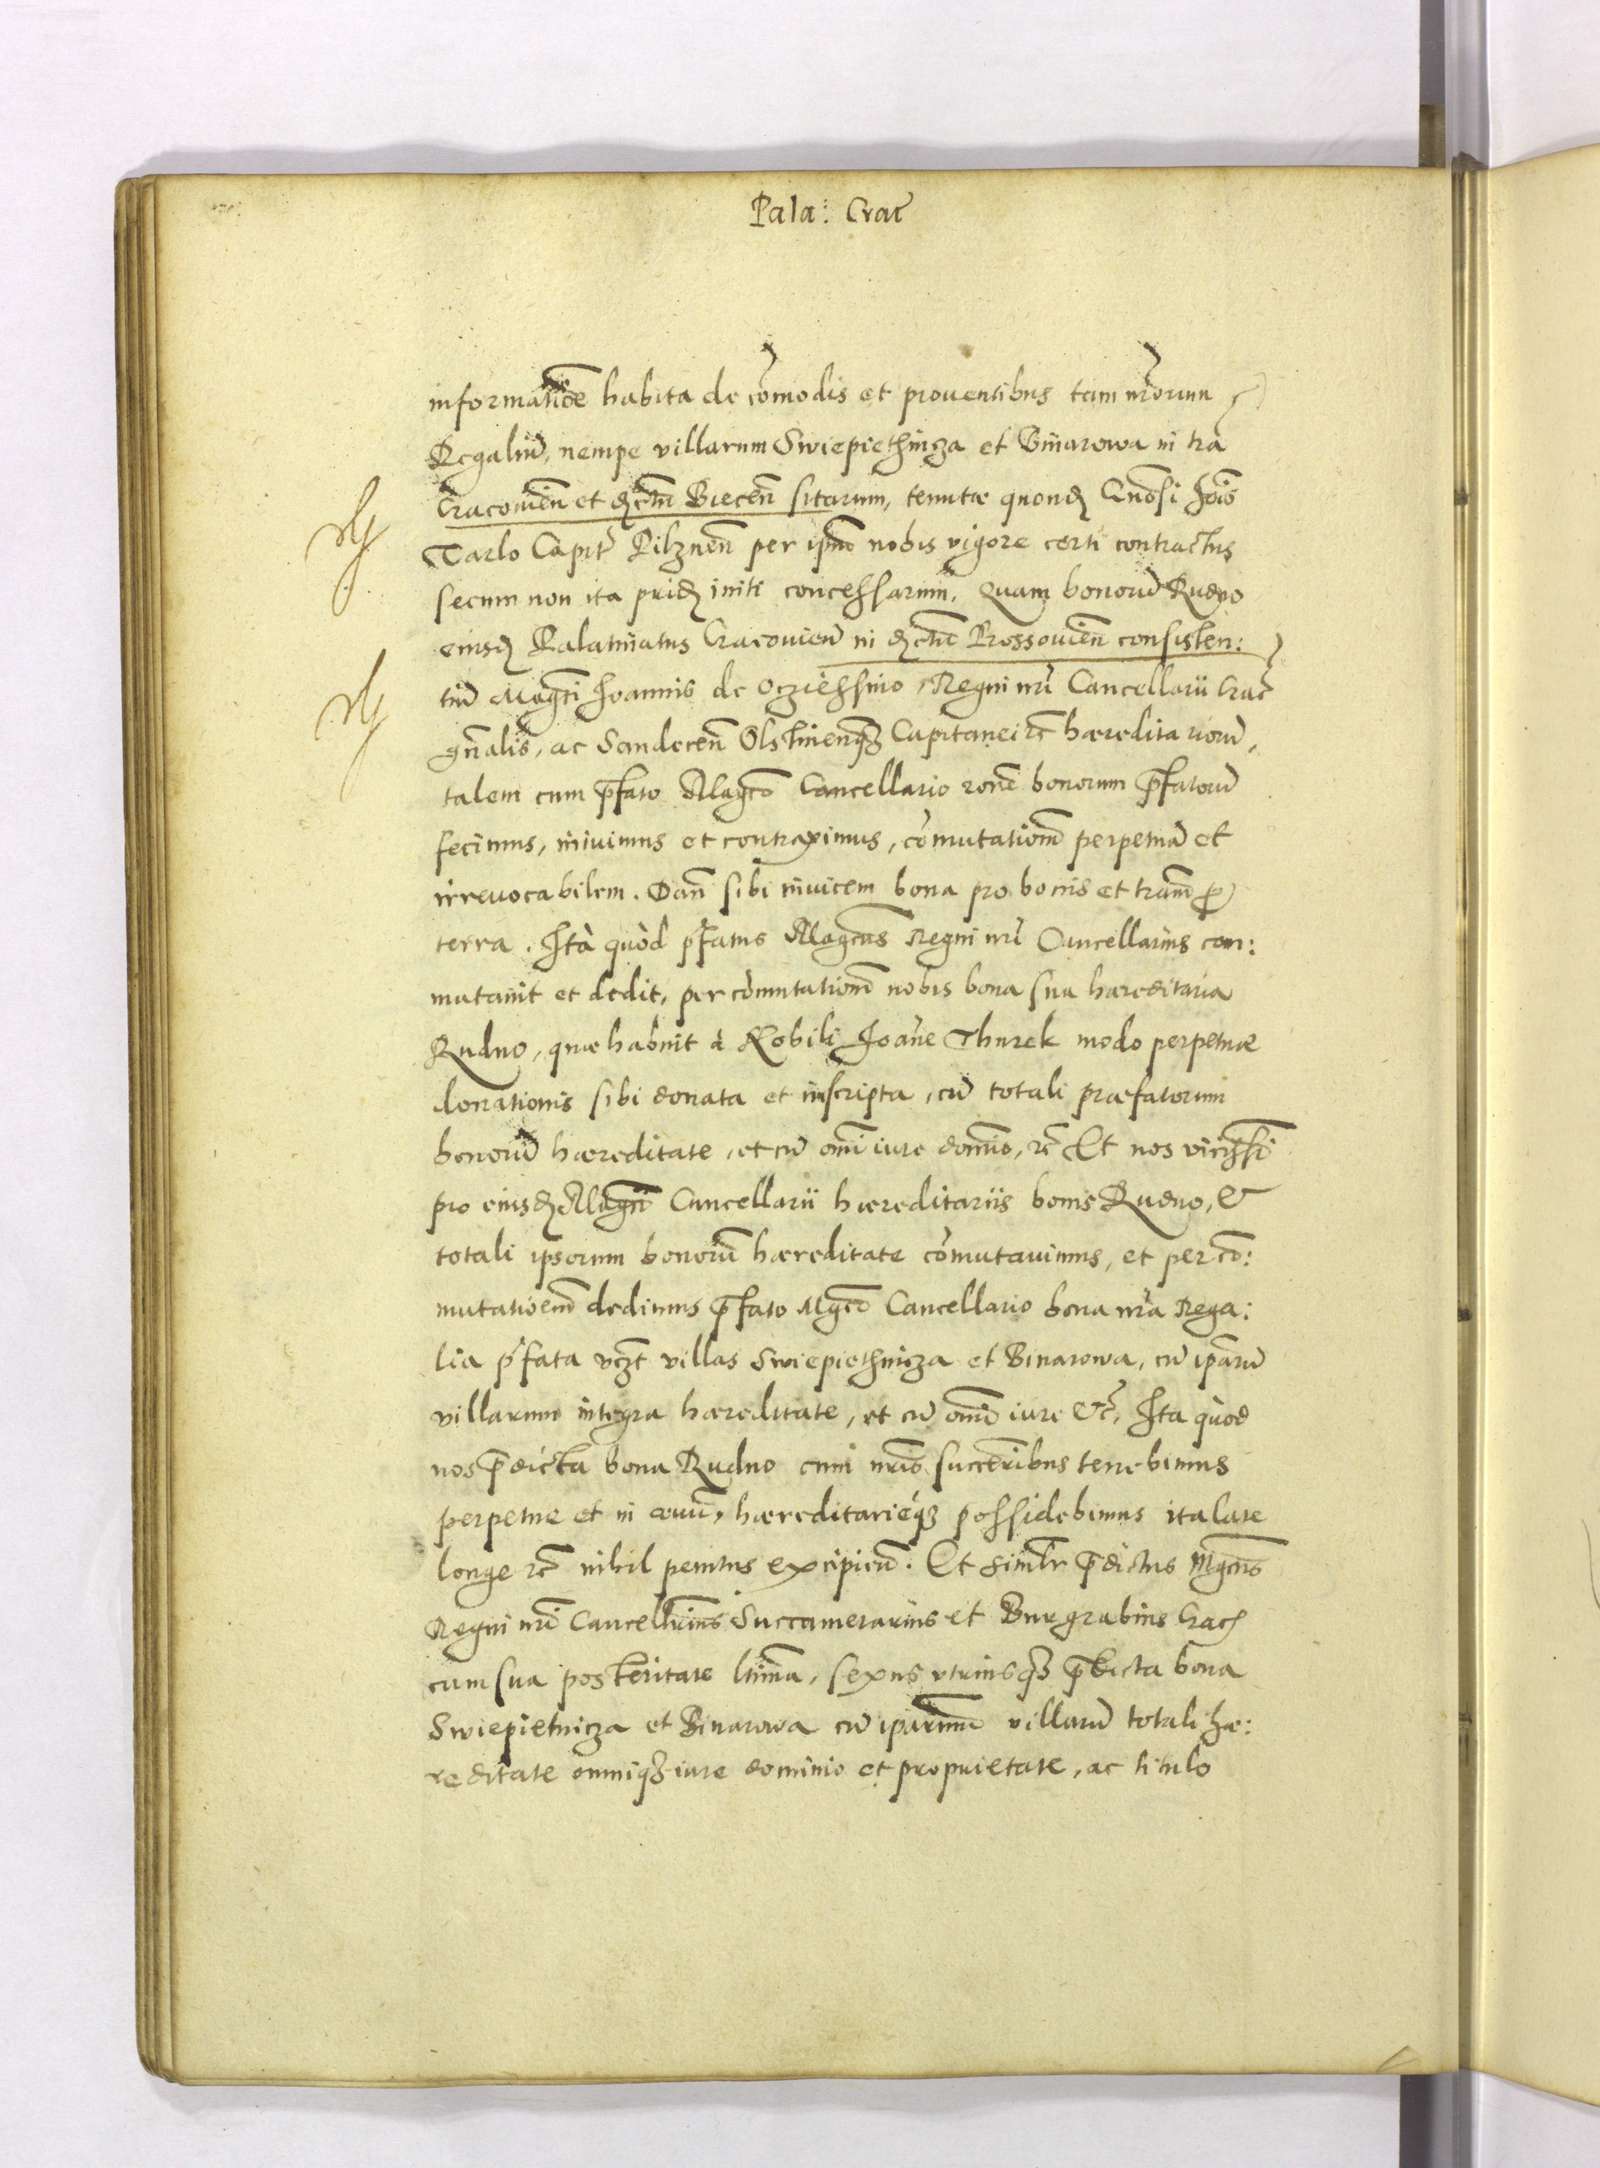 Pala: Crac̃
informatiõe habita de cõmodis et prouentibus tam nr̃orum
Regaliũ, nempe villarum Swiepiethnicza et Binarowa in tr̃a
Cracouieñ et dr̃ctũ Bieceñ sitarum, tenutæ quond̨ Gnõsi Joĩs
Tarlo Capit̃ Pilzneñ per ip̃m nobis vigore certi contractus
secum non ita prid̨ initi concessarum. Quam bonorũ Rudno
eiusd̨ Palatinatus Cracouieñ in dr̃ctũ Prossouieñ consisten:
tiũ Mag̃ci Joannis de Ocziessino, Regni nr̃i Cancellarii Crac̃
gñalis, ac Sandeceñ Olstineñq̃ Capitanei rc̃ hæreditariorũ,
talem cum p̃fato Mag̃co Cancellario rõne bonorum p̃fatorũ
fecimus, iniuimus et contraximus, cõmutationẽ perpetuã et
irreuocabilem. Dañ sibi inuicem bona pro bonis et tr̃am p̱
terra. Ità quòd p̃fatus Mag̃cus Regni nr̃i Cancellarius com:
mutauit et dedit, per cõmutationẽ nobis bona sua hæreditaria
Rudno, quæ habuit à Nobili Joãne Thurek modo perpetuæ
donationis sibi donata et inscripta, cũ totali præfatorum
bonorũ hæreditate, et cũ om̃i iure domĩo, rc̃ Et nos viciss̃i
pro eiusd̨ Mag̃ci Cancellarii hæreditariis bonis Rudno, &
totali ipsorum bonorũ hæreditate cõmutauimus, et per cõ:
mutatioẽm dedimus p̃fato Mg̃co Cancellario bona nr̃a Rega:
lia p̃fata vcz̃t villas Swiepiethnicza et Binarowa, cũ ip̃arũ
villarum integra hæreditate, et cũ om̃i iure &c̃, Ita quod
nos p̃dicta bona Rudno cum nr̃is succer̃ibus tenebimus
perpetue et in æuũ, hæreditarieq̃ possidebimus ita late
longe rc̃ nihil penitus excipieñ. Et simlr̃ p̃dictus Mg̃cus
Regni nr̃i Cancellr̃ius Succamerarius et Burgrabius Crac̨
cum sua posteritate ltĩma, sexus vtriusq̃ p̃dicta bona
Swiepietnicza et Binarowa cũ ip̃arum villarũ totali hæ:
reditate omniq̃ iure dominio et proprietate, ac titulo